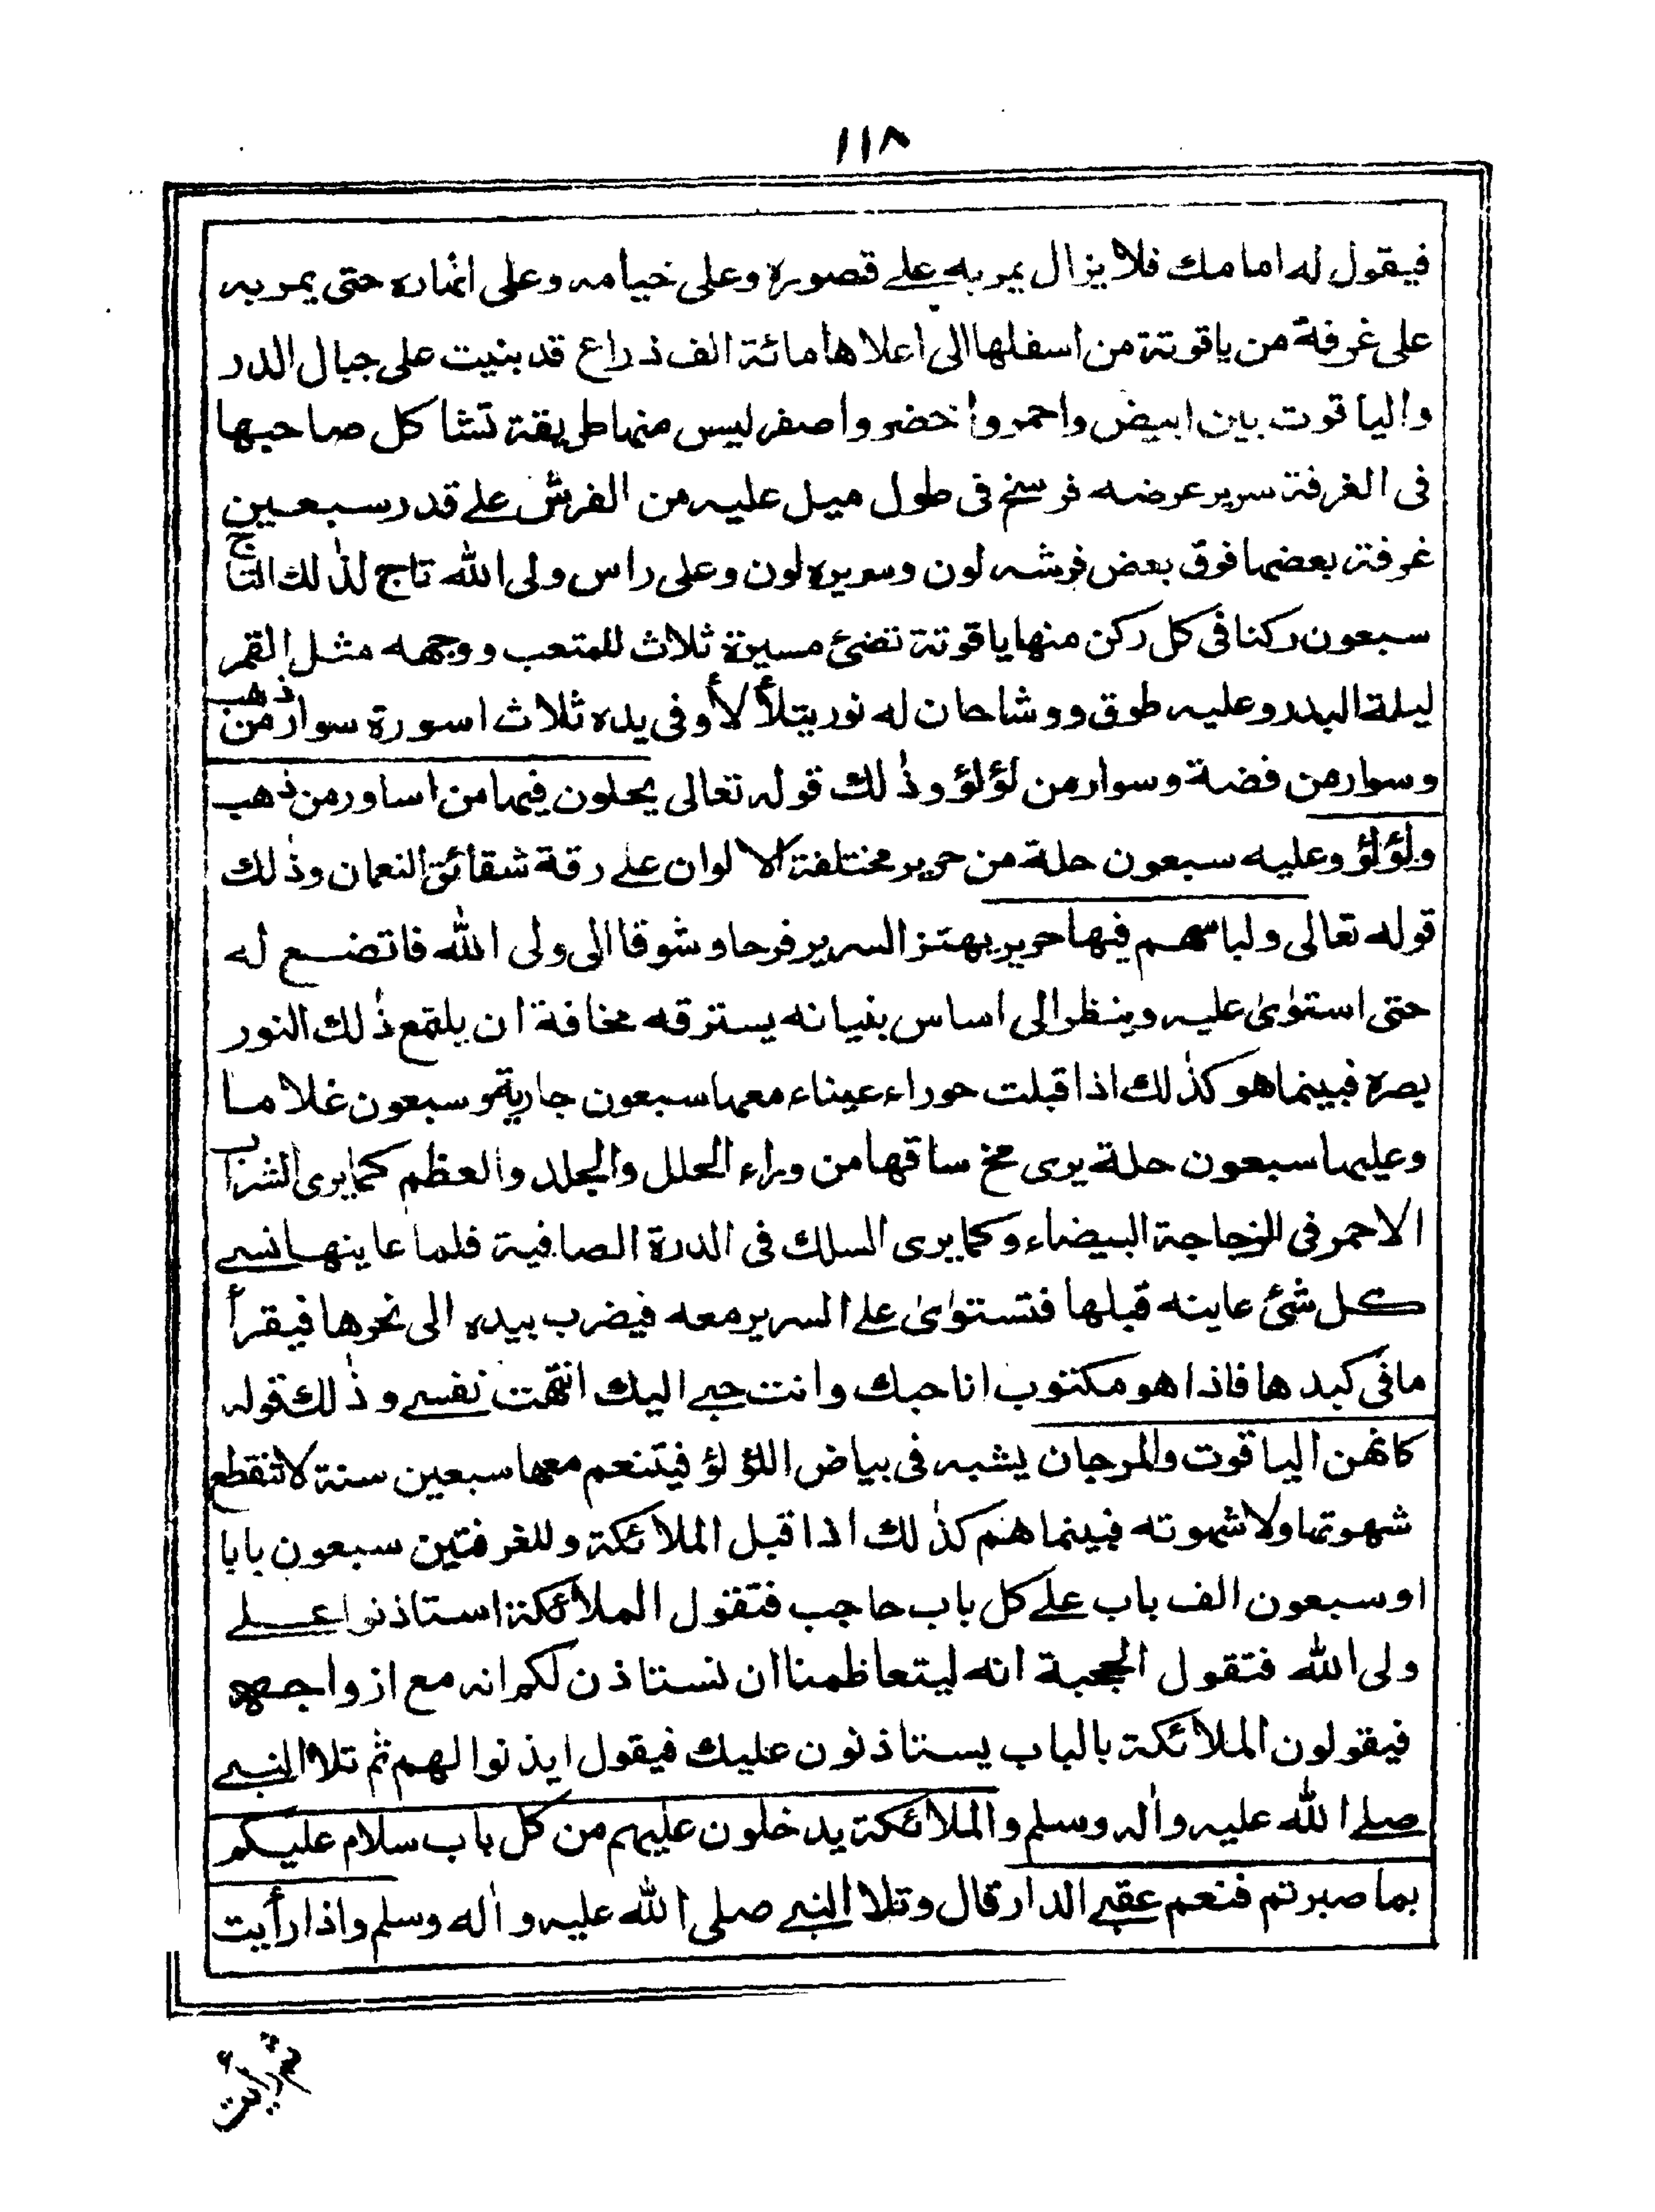 ١١٨
فيقول له امامك فلا يزال يمر به على قصوره وعلى خيامه وعلى انهاره حتى يمر به
على غرفة من ياقوتة من اسفلها الى اعلاها مائة الف ذراع قد بنيت على جبال الدر
والياقوت بين ابيض واحمر واخضر واصفر ليس منها طريقة تشاكل صاحبها
فى الغرفة سرير عرضه فرسخ فى طول ميل عليه من الفرش على قدر سبعين
غرفة بعضها فوق بعض فرشه لون وسريره لون وعلى راس ولى الله تاج لذلك التاج
سبعون ركنا فى كل ركن منها ياقوتة تضئ مسيرة ثلاث للمتعب ووجهه مثل القمر
ليلة البدر وعليه طوق ووشاحان له نور يتلألأ وفى يده ثلاث اسورة سوار من ذهب
وسوار من فضة وسوار من لؤلؤ وذلك قوله تعالى يحلون فيها من اساور من ذهب
ولؤلؤ وعليه سبعون حلة من حرير مختلفة الالوان على رقة شقائق النعمان وذلك
قوله تعالى ولباسهم فيها حرير يهتز السرير فرحا وشوقا الى ولى الله فاتضع له
حتى استوى عليه وينظر الى اساس بنيانه يسترقه مخافة ان يلتمع ذلك النور
بصره فبينما هو كذلك اذ اقبلت حوراء عيناء معها سبعون جارية وسبعون غلاما
وعليها سبعون حلة يرى مخ ساقها من وراء الحلل والجلد والعظم كما يرى الشراب
الاحمر فى الزجاجة البيضاء وكما يرى السلك فى الدرة الصافية فلما عاينها نسى
كل شئ عاينه قبلها فتستوى على السرير معه فيضرب بيده الى نحرها فيقرأ
ما فى كبدها فاذا هو مكتوب انا حبك وانت حبى اليك انتهت نفسى وذلك قوله
كانهن الياقوت والمرجان يشبه فى بياض اللؤلؤ فيتنعم معها سبعين سنة لا تنقطع
شهوتها ولا شهوته فبينما هم كذلك اذا قبل الملائكة وللغرفتين سبعون بابا
او سبعون الف باب على كل باب حاجب فتقول الملائكة استاذنوا على
ولى الله فتقول الحجبة انه ليتعاظمنا ان نستاذن لكم انه مع ازواجه
فيقولون الملائكة بالباب يستاذنون عليك فيقول ايذنوا لهم ثم تلا النبى
صلى الله عليه واله وسلم والملائكة يدخلون عليهم من كل باب سلام عليكم
بما صبرتم فنعم عقبى الدار قال وتلا النبى صلى الله عليه واله وسلم واذا رأيت
ثم رأيت